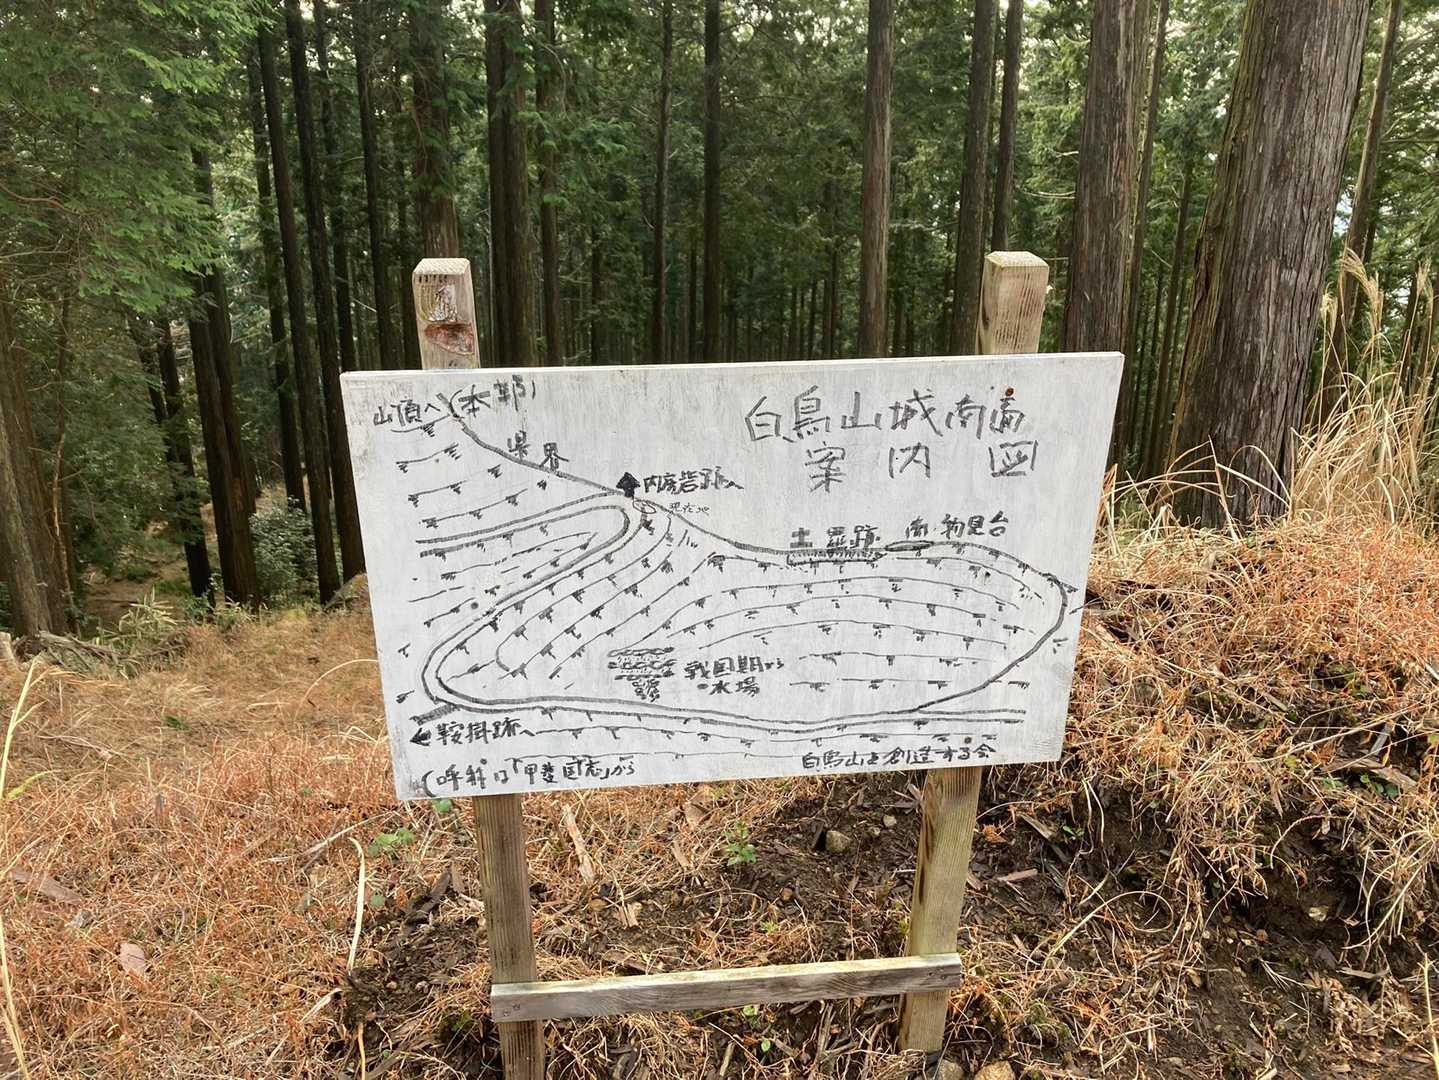 白鳥山城南面
案内図
山頂へ(本部)
県界
内房砦跡へ
現在地
土塁跡
南・物見台
戦国期から
の水場
鞍掛跡へ
(呼称は「甲斐国志」から
白鳥山を創造する会